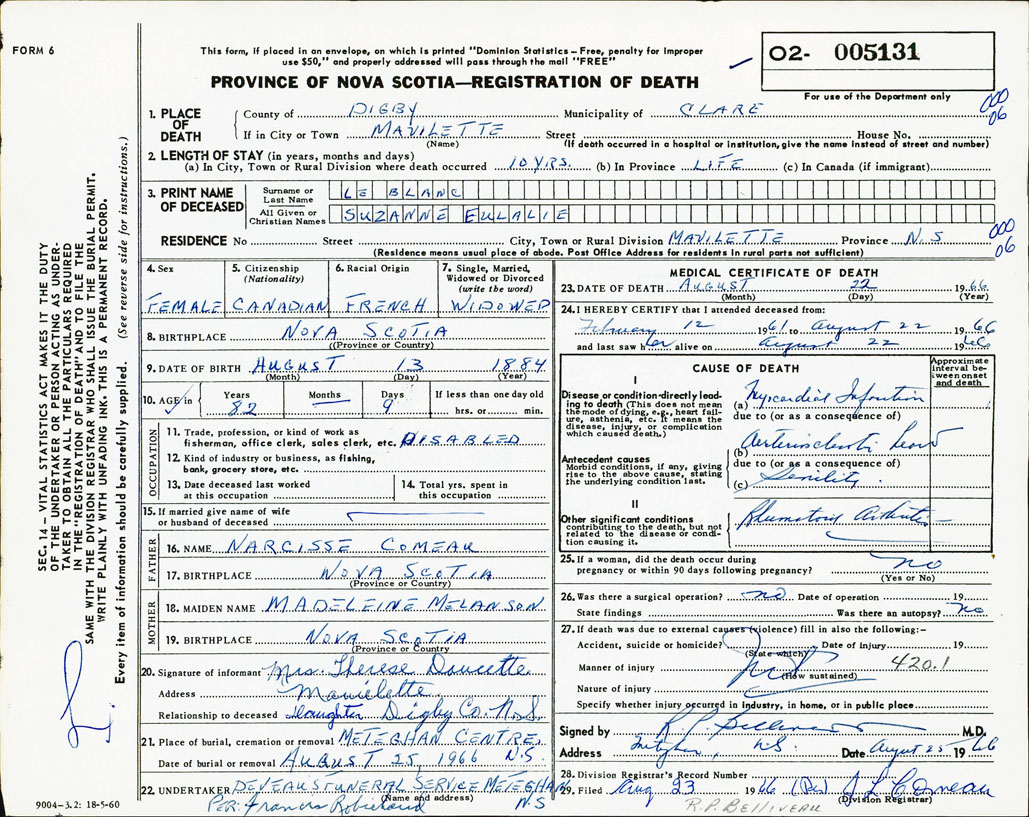 FORM 6
This form, if placed in an envelope, on which is printed "Dominion Statistics – Free, penalty for improper
use $50," and properly addressed will pass through the mail "FREE"
PROVINCE OF NOVA SCOTIA—REGISTRATION OF DEATH
02- 005131
For use of the Department only
000
06
1. PLACE OF DEATH
County of DIGBY Municipality of CLARE
If in City or Town MAVILETTE Street House No.
(Name) (If death occurred in a hospital or institution, give the name instead of street and number)
2. LENGTH OF STAY (in years, months and days)
(a) In City, Town or Rural Division where death occurred 10 YRS. (b) In Province LIFE (c) In Canada (if immigrant)
3. PRINT NAME OF DECEASED
Surname or Last Name LE BLANC
All Given or Christian Names SUZANNE EULALIE
000
06
RESIDENCE No Street City, Town or Rural Division MAVILETTE Province N.S
(Residence means usual place of abode. Post Office Address for residents in rural parts not sufficient)
4. Sex FEMALE
5. Citizenship (Nationality) CANADIAN
6. Racial Origin FRENCH
7. Single, Married, Widowed or Divorced (write the word) WIDOWED
8. BIRTHPLACE NOVA SCOTIA
(Province or Country)
9. DATE OF BIRTH AUGUST 13 1884
(Month) (Day) (Year)
10. AGE in Years 82 Months — Days 9 If less than one day old hrs. or min.
OCCUPATION
11. Trade, profession, or kind of work as
fisherman, office clerk, sales clerk, etc. DISABLED
12. Kind of industry or business, as fishing,
bank, grocery store, etc.
13. Date deceased last worked at this occupation
14. Total yrs. spent in this occupation
15. If married give name of wife
or husband of deceased
FATHER
16. NAME NARCISSE COMEAU
17. BIRTHPLACE NOVA SCOTIA
(Province or Country)
MOTHER
18. MAIDEN NAME MADELEINE MELANSON
19. BIRTHPLACE NOVA SCOTIA
(Province or Country)
20. Signature of informant Mrs. Therese Doucette
Address Mavielette
Relationship to deceased Daughter Digby Co. N.S.
21. Place of burial, cremation or removal METEGHAN CENTRE,
Date of burial or removal AUGUST 25, 1966 N.S.
22. UNDERTAKER DEVEAU'S FUNERAL SERVICE METEGHAN
(Name and address)
PER: Francis Robichaud N.S
9004–3.2: 18-5-60
MEDICAL CERTIFICATE OF DEATH
23. DATE OF DEATH AUGUST 22 1966
(Month) (Day) (Year)
24. I HEREBY CERTIFY that I attended deceased from:
February 12 1961 to August 22 1966
and last saw her alive on August 22 1966
CAUSE OF DEATH
Approximate interval between onset and death
I
Disease or condition directly leading to death (This does not mean the mode of dying, e.g., heart failure, asthenia, etc. It means the disease, injury, or complication which caused death.)
(a) Myocardial Infarction
due to (or as a consequence of)
Antecedent causes
Morbid conditions, if any, giving rise to the above cause, stating the underlying condition last.
(b) Arteriosclerotic heart
due to (or as a consequence of)
(c) Senility
II
Other significant conditions
contributing to the death, but not related to the disease or condition causing it.
Rhumatoid Arthritis
25. If a woman, did the death occur during
pregnancy or within 90 days following pregnancy? no
(Yes or No)
26. Was there a surgical operation? no Date of operation 19
State findings Was there an autopsy? no
27. If death was due to external causes (violence) fill in also the following:–
Accident, suicide or homicide? Date of injury 19
(State which)
Manner of injury 420.1
(How sustained)
Nature of injury
Specify whether injury occurred in industry, in home, or in public place
Signed by R. P. Belliveau M.D.
Address Meteghan, N.S. Date August 25 1966
28. Division Registrar's Record Number
29. Filed Aug 23 1966 J L Comeau
(Division Registrar)
R.P. BELLIVEAU
SEC. 14 – VITAL STATISTICS ACT MAKES IT THE DUTY
OF THE UNDERTAKER OR PERSON ACTING AS UNDER-
TAKER TO OBTAIN ALL THE PARTICULARS REQUIRED
IN THE "REGISTRATION OF DEATH" AND TO FILE THE
SAME WITH THE DIVISION REGISTRAR WHO SHALL ISSUE THE BURIAL PERMIT.
WRITE PLAINLY WITH UNFADING INK. THIS IS A PERMANENT RECORD.
Every item of information should be carefully supplied. (See reverse side for instructions.)